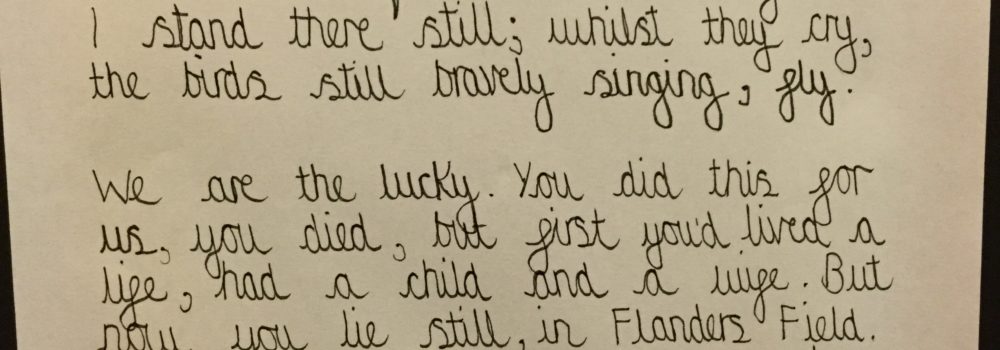 I stand there still; whilst they cry,
the birds still bravely singing, fly.
We are the lucky. You did this for
us, you died, but first you'd lived a
life, had a child and a wife. But
now you lie still, in Flanders Field.